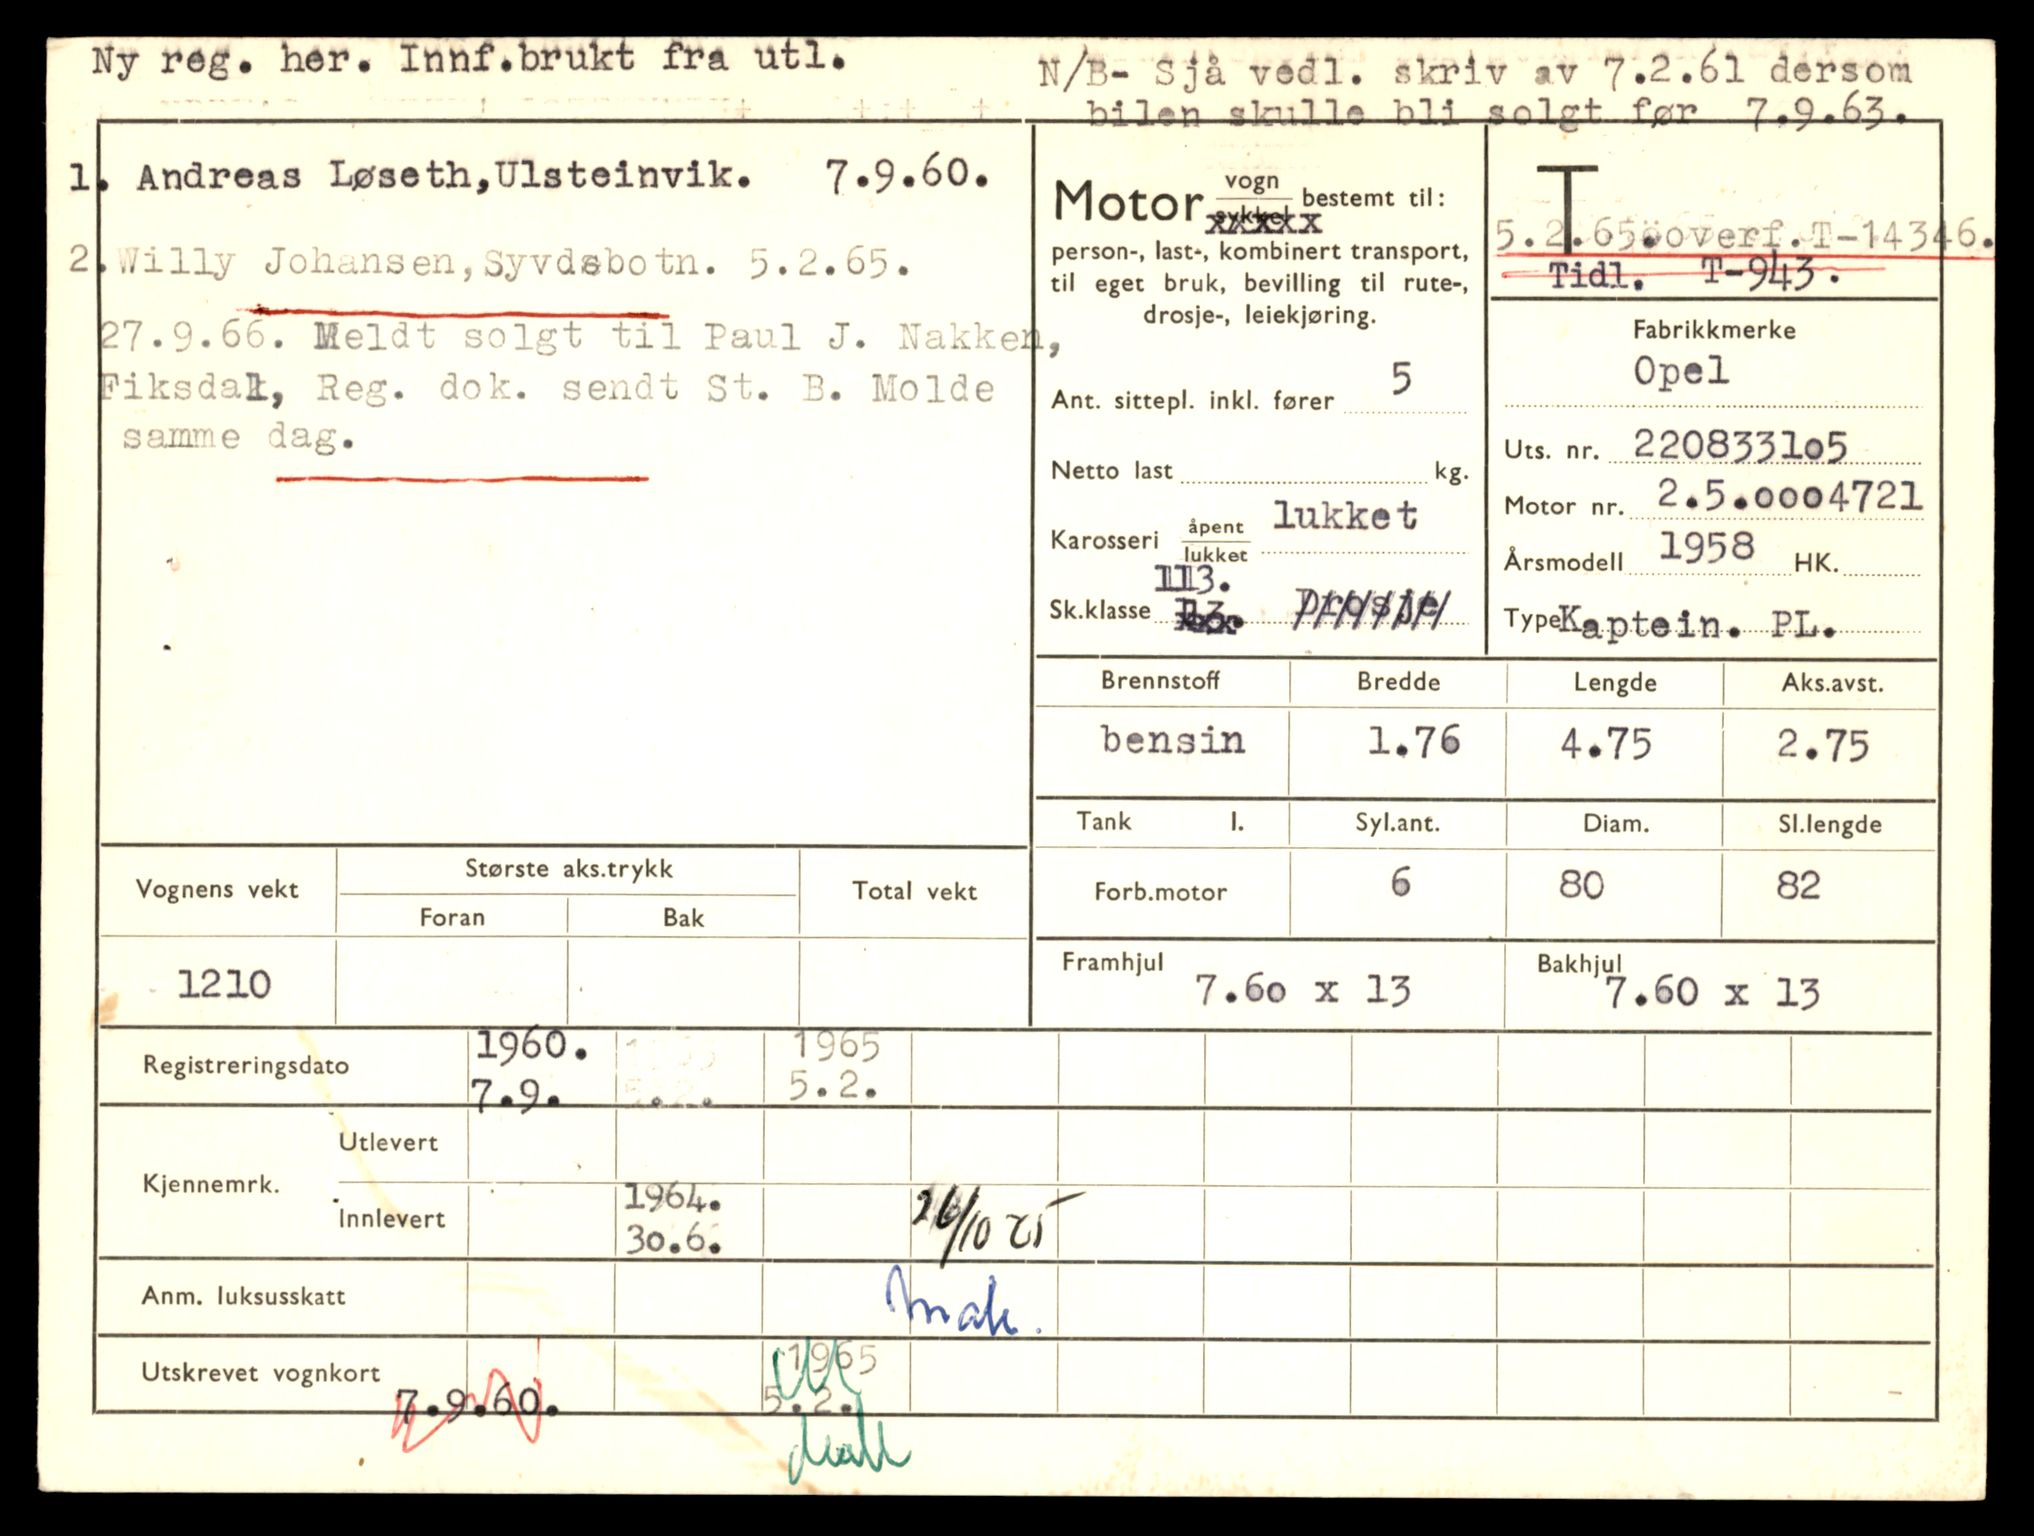 Ny reg. her. Innf.brukt fra utl.
N/B- Sjå vedl. skriv av 7.2.61 dersom
bilen skulle bli solgt før 7.9.63.
1. Andreas Løseth,Ulsteinvik. 7.9.60.
2.Willy Johansen,Syvdsbotn. 5.2.65.
27.9.66. Meldt solgt til Paul J. Nakken,
Fiksdal, Reg. dok. sendt St. B. Molde
samme dag.
Motor vogn bestemt til:
sykkel
person-, last-, kombinert transport,
til eget bruk, bevilling til rute-,
drosje-, leiekjøring.
Ant. sittepl. inkl. fører 5
Netto last kg.
Karosseri åpent lukket
lukket
113.
Sk.klasse 13. Drosje
T
5.2.65.overf.T-14346.
Tidl. T-943.
Fabrikkmerke
Opel
Uts. nr. 220833105
Motor nr. 2.5.0004721
Årsmodell 1958 HK.
Type Kaptein. PL.
Brennstoff Bredde Lengde Aks.avst.
bensin 1.76 4.75 2.75
Tank l. Syl.ant. Diam. Sl.lengde
Forb.motor 6 80 82
Framhjul 7.60 x 13 Bakhjul 7.60 x 13
Vognens vekt Største aks.trykk Total vekt
Foran Bak
1210
Registreringsdato 1960. 1965
7.9. 5.2. 5.2.
Kjennemrk. Utlevert
Innlevert 1964.
30.6.
Anm. luksusskatt
Utskrevet vognkort 1965
7.9.60. 5.2.